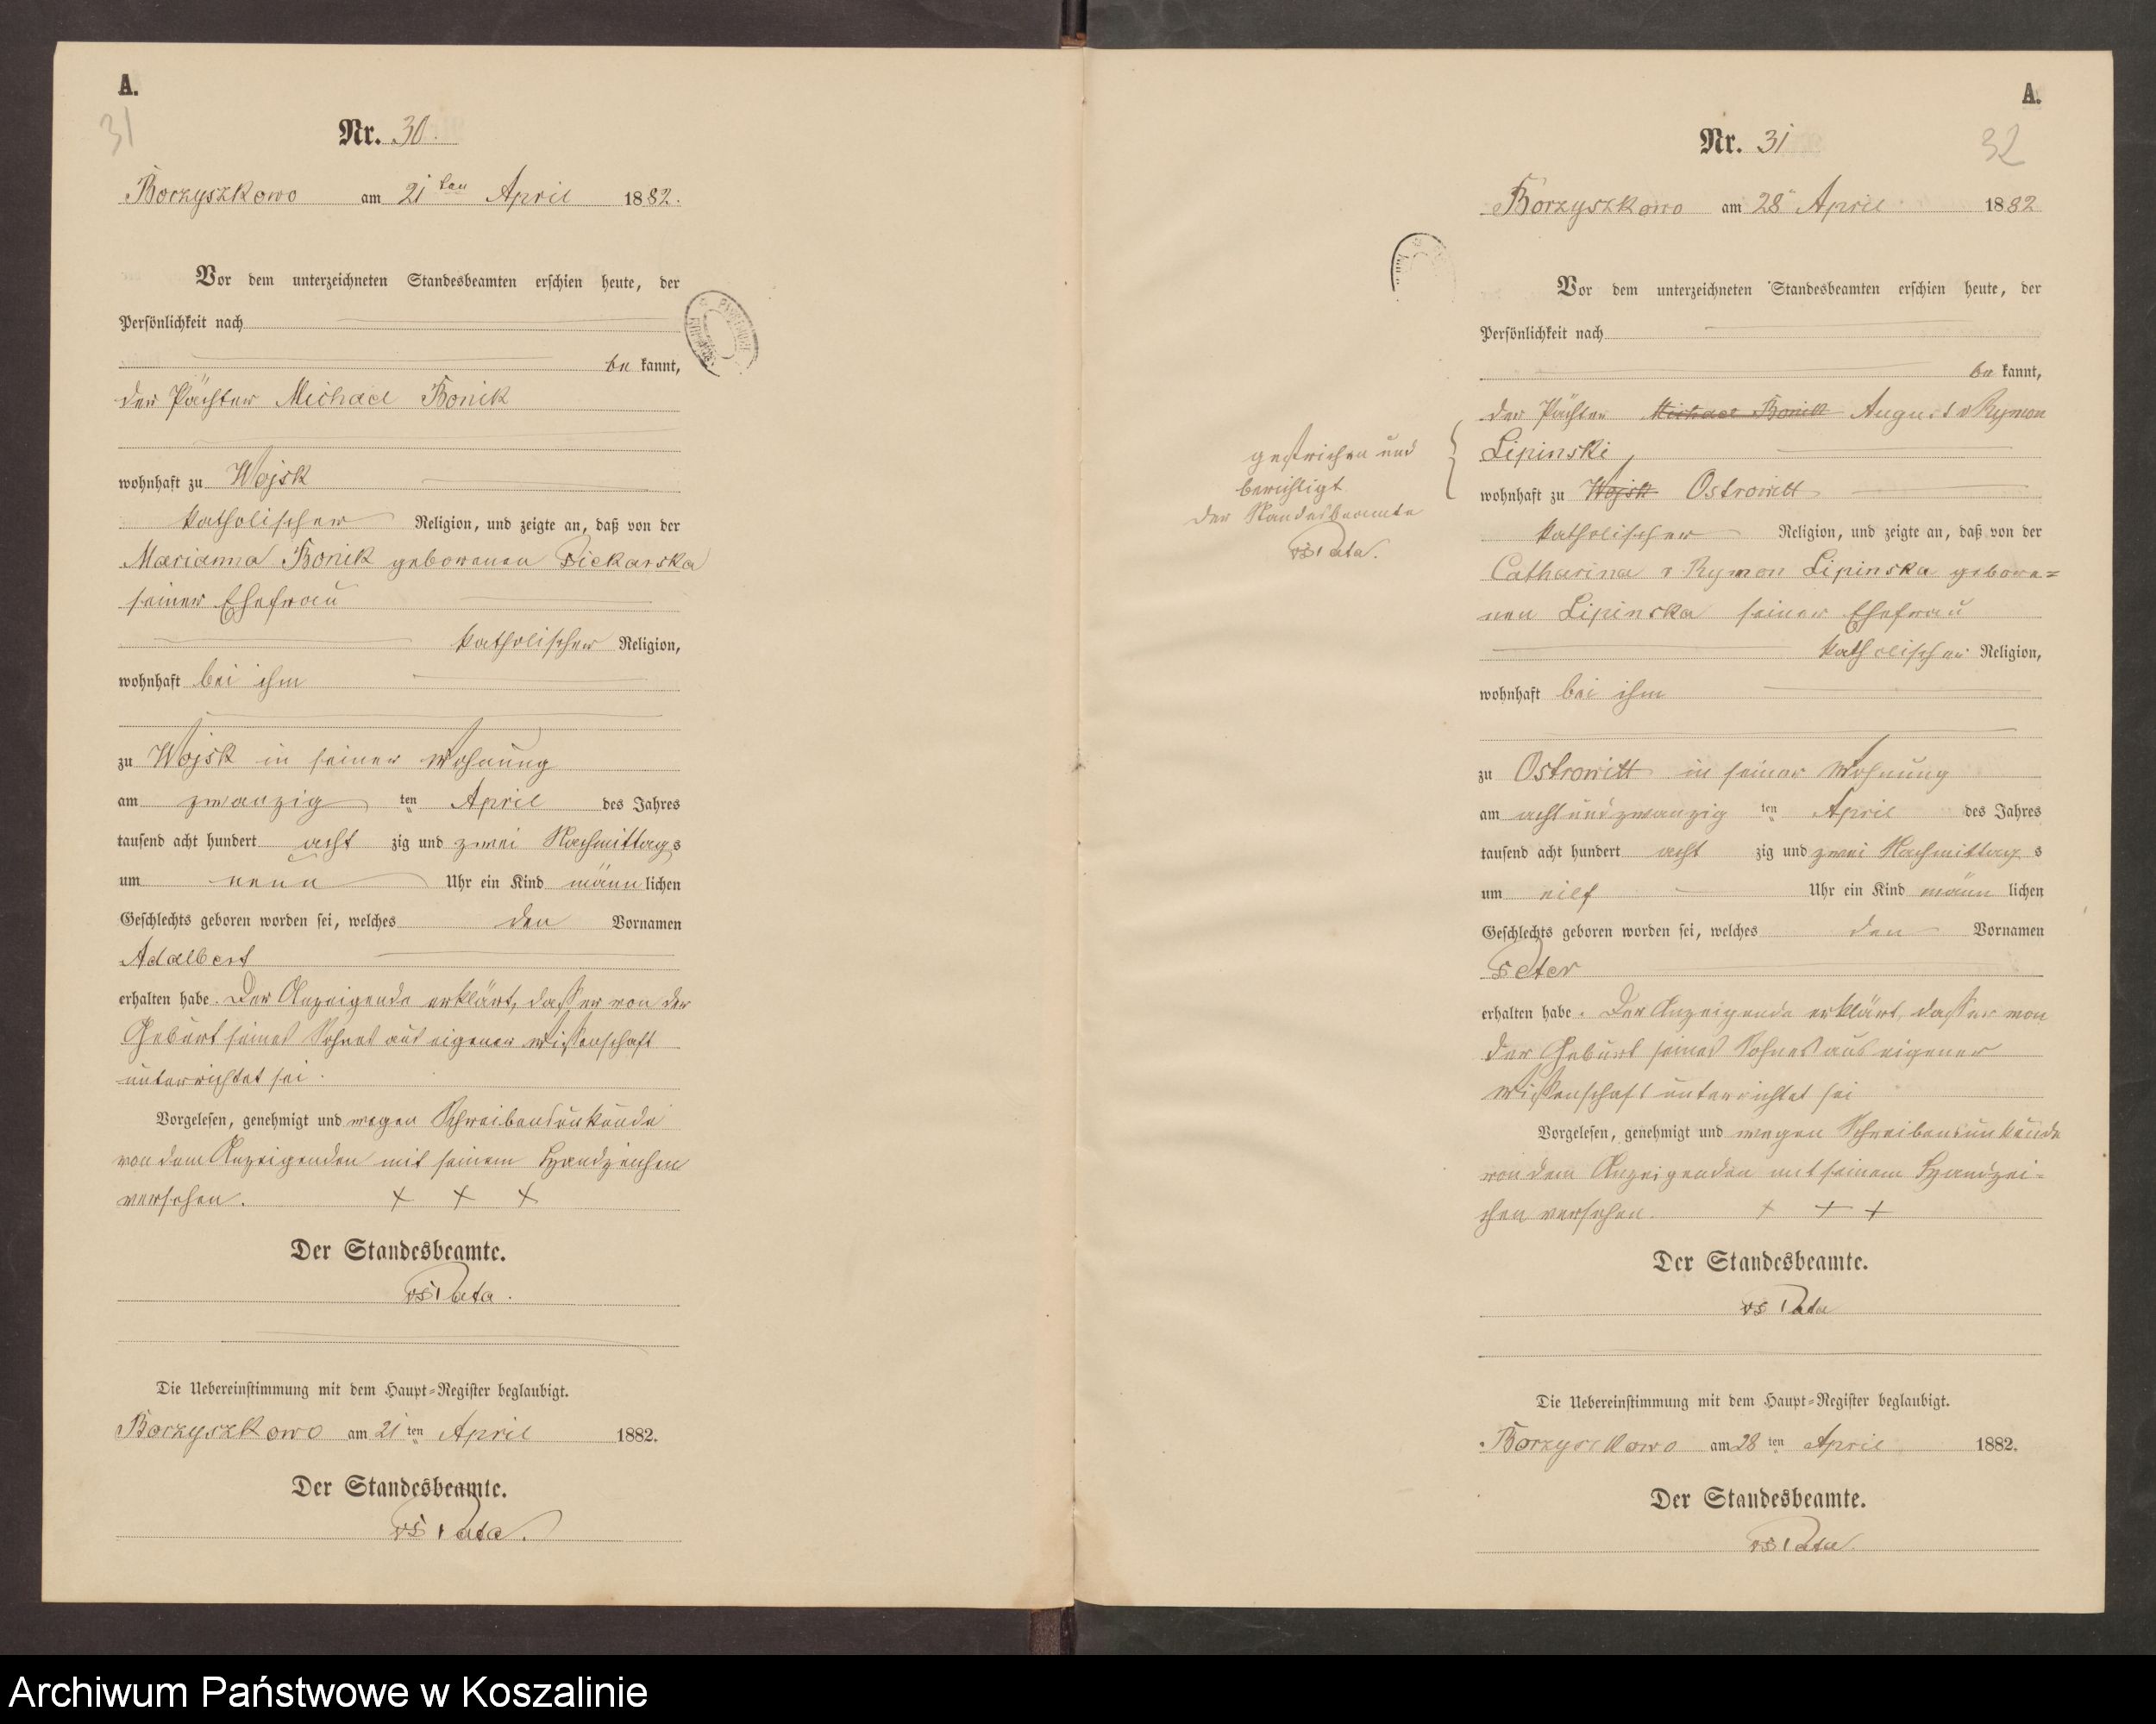 A.
31
Nr. 30.
Borzyszkowo am 21ten April 1882.
Vor dem unterzeichneten Standesbeamten erschien heute, der
Persönlichkeit nach
be kannt,
der Pächter Michael Bonik
wohnhaft zu Wojsk
katholischer Religion, und zeigte an, daß von der
Marianna Bonik geborenen Piekarska
seiner Ehefrau
katholischer Religion,
wohnhaft bei ihm
zu Wojsk in seiner Wohnung
am zwanzig ten April des Jahres
tausend acht hundert acht zig und zwei Nachmittags
um neun Uhr ein Kind männ lichen
Geschlechts geboren worden sei, welches den Vornamen
Adalbert
erhalten habe. Der Anzeigende erklärt, daß er von der
Geburt seines Sohnes aus eigener Wißenschaft
unterrichtet sei.
Vorgelesen, genehmigt und wegen Schreibensunkunde
von dem Anzeigenden mit seinem Handzeichen
versehen. + + +
Der Standesbeamte.
Die Uebereinstimmung mit dem Haupt-Register beglaubigt.
Borzyszkowo am 21 ten April 1882.
Der Standesbeamte.
A.
32
Nr. 31
Borzyszkowo am 28 April 1882
Vor dem unterzeichneten Standesbeamten erschien heute, der
Persönlichkeit nach
be kannt,
der Pächter Michael Bonik August v Rymon
Lipinski,
wohnhaft zu Wojsk Ostrowitt
gestrichen und
berichtigt
der Standesbeamte
katholischer Religion, und zeigte an, daß von der
Catharina v Rymon Lipinska gebore=
nen Lipinska seiner Ehefrau
katholischer Religion,
wohnhaft bei ihm
zu Ostrowitt in seiner Wohnung
am acht und zwanzig ten April des Jahres
tausend acht hundert acht zig und zwei Nachmittag s
um eilf Uhr ein Kind männ lichen
Geschlechts geboren worden sei, welches den Vornamen
Peter
erhalten habe. Der Anzeigende erklärt, daß er von
der Geburt seines Sohnes aus eigener
Wißenschaft unterrichtet sei
Vorgelesen, genehmigt und wegen Schreibensunkunde
von dem Anzeigenden mit seinem Handzei=
chen versehen. + + +
Der Standesbeamte.
Die Uebereinstimmung mit dem Haupt-Register beglaubigt.
Borzyszkowo am 28 ten April 1882.
Der Standesbeamte.
Archiwum Państwowe w Koszalinie